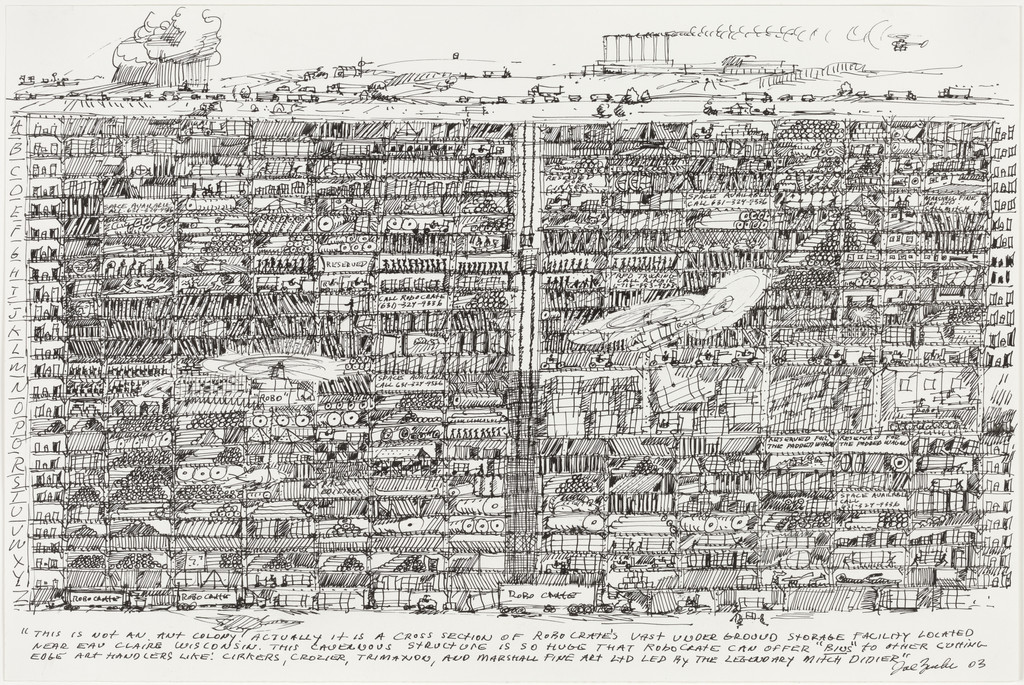 A
B
C
D
E
F
G
H
I
J
K
L
M
N
O
P
Q
R
S
T
U
V
W
X
Y
Z
CALL 631-324-9526
RESERVED
CALL ROBO CRATE
(631)-324-9526
SPACE AVAILABLE
CALL 631-324-9526
"ROBO"
RESERVED FOR
THE PADDED WAGON
RESERVE
THE PADDED WAGON
SPACE AVAILABLE
CALL
ROBO CRATE
ROBO CRATE
ROBO CRATE
"THIS IS NOT AN ANT COLONY. ACTUALLY IT IS A CROSS SECTION OF ROBO CRATE'S VAST UNDER GROUND STORAGE FACILITY LOCATED
NEAR EAU CLAIRE WISCONSIN. THIS CAVERNOUS STRUCTURE IS SO HUGE THAT ROBO CRATE CAN OFFER "BINS" TO OTHER CUTTING
EDGE ART HANDLERS LIKE: CIRKERS, CROZIER, TRIMAXION, AND MARSHALL FINE ART LTD LED BY THE LEGENDARY MITCH DIDIER"
03